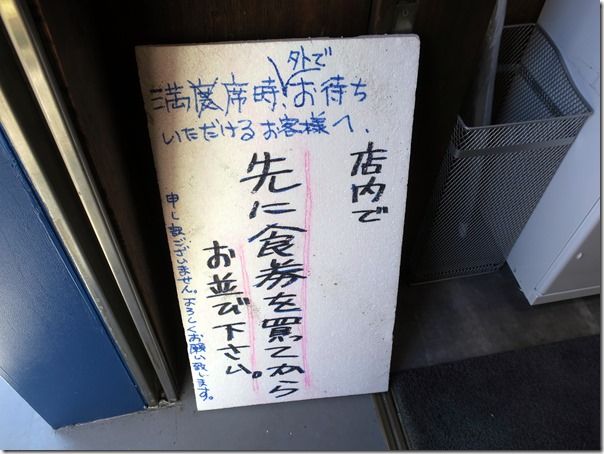 外で
満度席時、お待ち
いただけるお客様へ、
店内で
先に食券を買ってから
お並び下さい。
申し訳ございません。よろしくお願い致します。